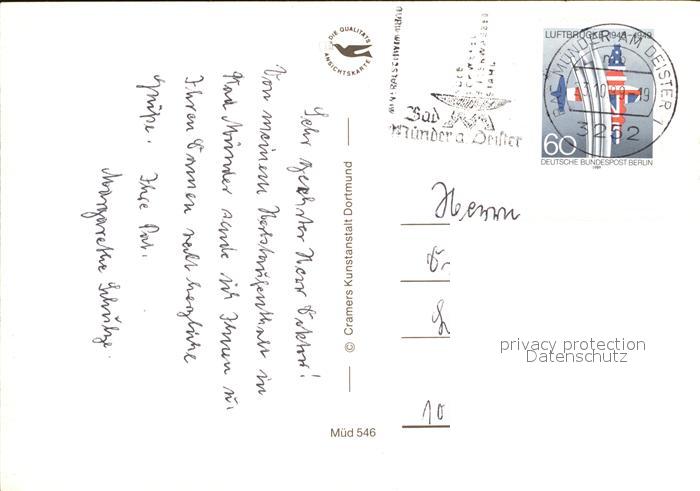 Sehr geehrter Herr Doktor!
Von meinem Herbstaufenthalt in
Bad Münder sende ich Ihnen u.
Ihren Damen recht herzliche
Grüße. Ihre Pat.
Margarethe Schütze.
DIE QUALITÄTS
ANSICHTSKARTE
© Cramers Kunstanstalt Dortmund
Müd 546
SCHWEFEL
STAHL
Bad
Münder a. Deister
LUFTBRÜCKE 1948-1949
MÜNDER AM DEISTER 1
3252
60
DEUTSCHE BUNDESPOST BERLIN
1989
Herrn
Dr.
10
privacy protection
Datenschutz